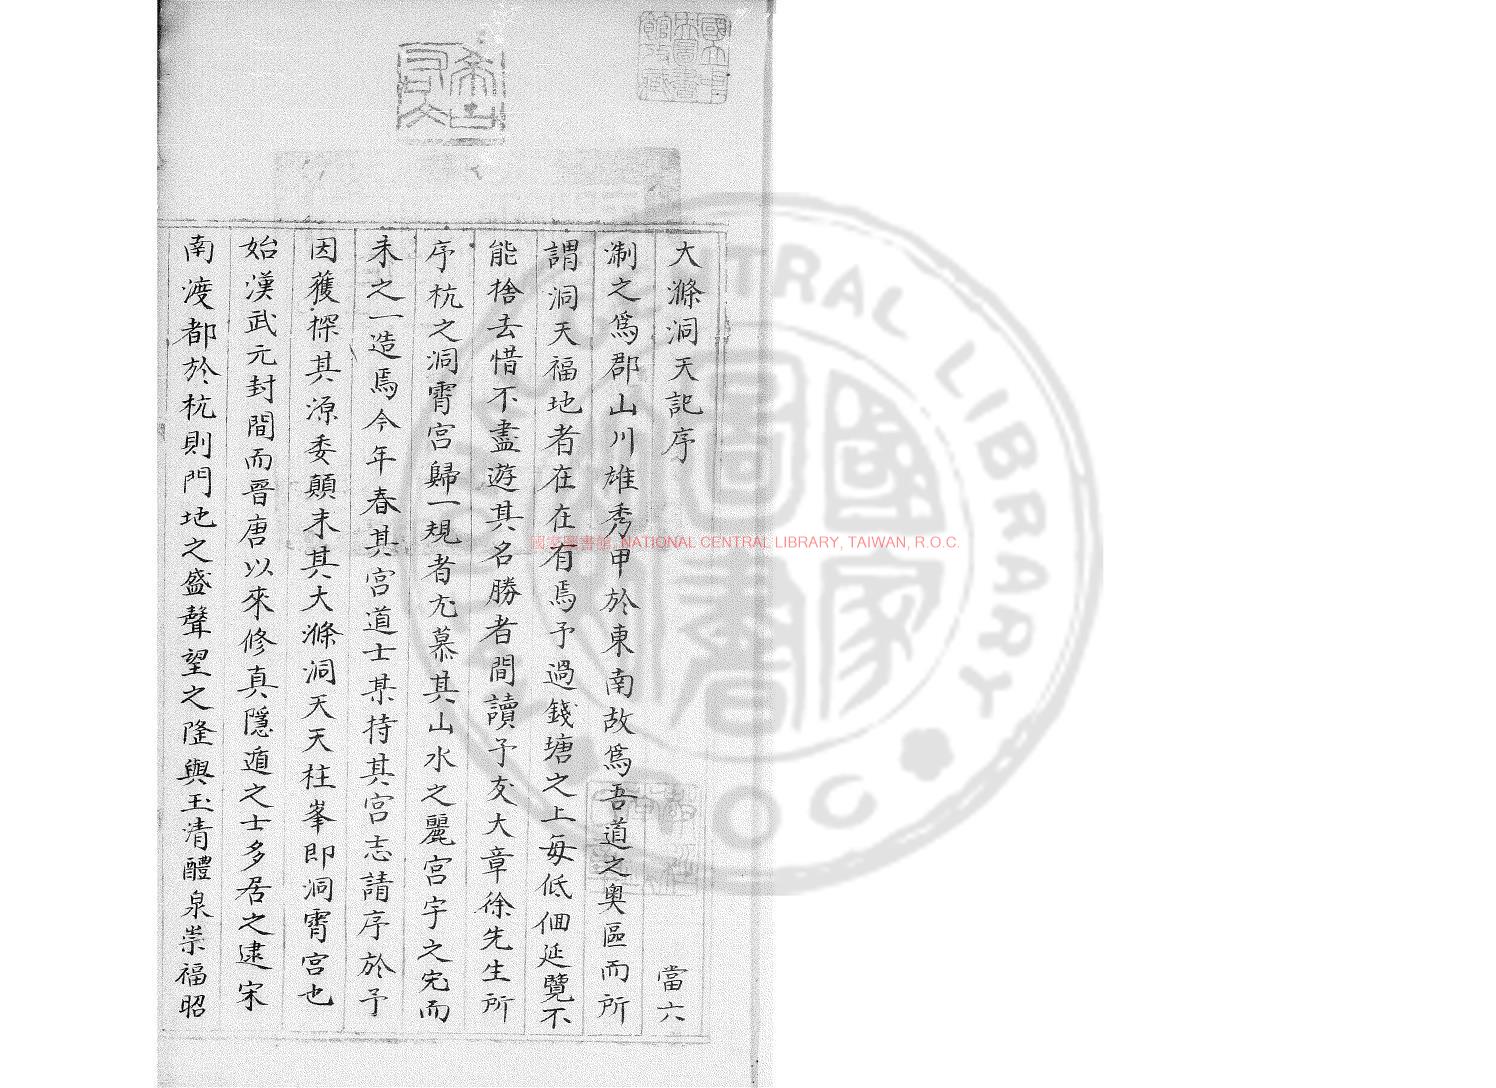 大滌洞天記序 當六
淛之爲郡山川雄秀甲於東南故爲吾道之奥區而所
謂洞天福地者在在有焉予過錢塘之上每低佪延覽不
能捨去惜不盡遊其名勝者間讀予友大章徐先生所
序杭之洞霄宮歸一規者尤慕其山水之麗宮宇之完而
未之一造焉今年春其宮道士某持其宮志請序於予
因獲探其源委顛末其大滌洞天天柱峯即洞霄宮也
始漢武元封間而晉唐以來修真隱遁之士多居之逮宋
南渡都於杭則門地之盛聲望之隆與玉清醴泉崇福昭
國家圖書館, NATIONAL CENTRAL LIBRARY, TAIWAN, R.O.C.